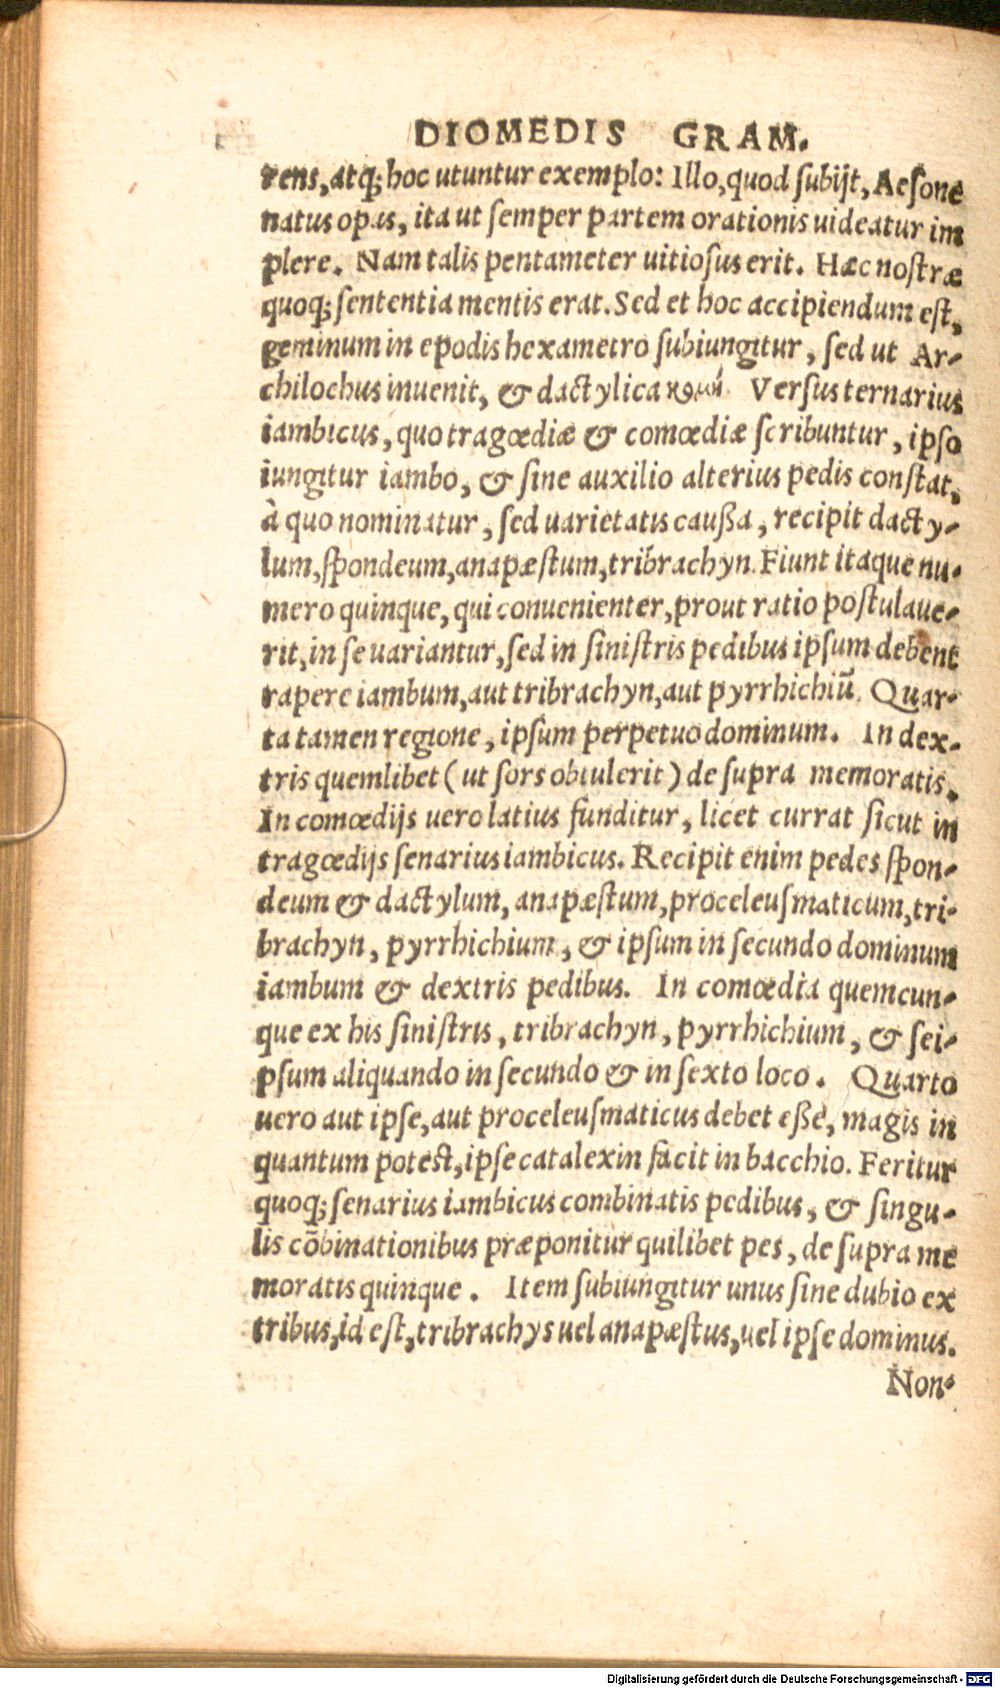 DIOMEDIS GRAM.
rens, atq; hoc utuntur exemplo: Illo, quod subijt, Aesone
natus opas, ita ut semper partem orationis uideatur im
plere. Nam talis pentameter uitiosus erit. Hæc nostræ
quoq; sententia mentis erat. Sed et hoc accipiendum est,
geminum in epodis hexametro subiungitur, sed ut Ar-
chilochus inuenit, & dactylica Versus ternarius
iambicus, quo tragœdiæ & comœdiæ scribuntur, ipso
iungitur iambo, & sine auxilio alterius pedis constat,
à quo nominatur, sed uarietatis caußa, recipit dacty-
lum, spondeum, anapæstum, tribrachyn. Fiunt itaque nu-
mero quinque, qui conuenienter, prout ratio postulaue-
rit, in se uariantur, sed in sinistris pedibus ipsum debent
rapere iambum, aut tribrachyn, aut pyrrhichiū. Quar-
ta tamen regione, ipsum perpetuo dominum. In dex-
tris quemlibet (ut sors obtulerit) de supra memoratis.
In comœdijs uero latius funditur, licet currat sicut in
tragœdijs senarius iambicus. Recipit enim pedes spon-
deum & dactylum, anapæstum, proceleusmaticum, tri-
brachyn, pyrrhichium, & ipsum in secundo dominum
iambum & dextris pedibus. In comœdia quemcun-
que ex his sinistris, tribrachyn, pyrrhichium, & sei-
psum aliquando in secundo & in sexto loco. Quarto
uero aut ipse, aut proceleusmaticus debet eße, magis in
quantum potest, ipse catalexin facit in bacchio. Feritur
quoq; senarius iambicus combinatis pedibus, & singu-
lis cōbinationibus præponitur quilibet pes, de supra me
moratis quinque. Item subiungitur unus sine dubio ex
tribus, id est, tribrachys uel anapæstus, uel ipse dominus.
Non-
Digitalisierung gefördert durch die Deutsche Forschungsgemeinschaft - DFG